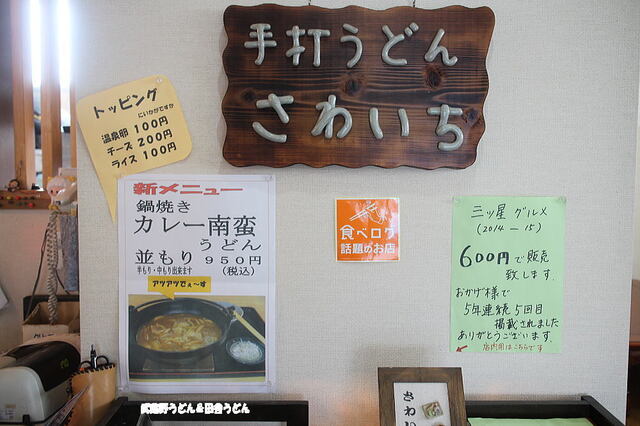 手打うどん
さわいち
トッピング
にいかがですか
温泉卵 100円
チーズ 200円
ライス 100円
新メニュー
鍋焼き
カレー南蛮
うどん
並もり 950円
半もり・中もり出来ます (税込)
アツアツでぇ～す
食べログ
話題のお店
三ッ星 グルメ
(2014－15)
600円で販売
致します.
おかげ様で
5年連続5回目
掲載されました
ありがとうございます.
店内用はこちらです
さわい
武蔵野うどん＆田舎うどん